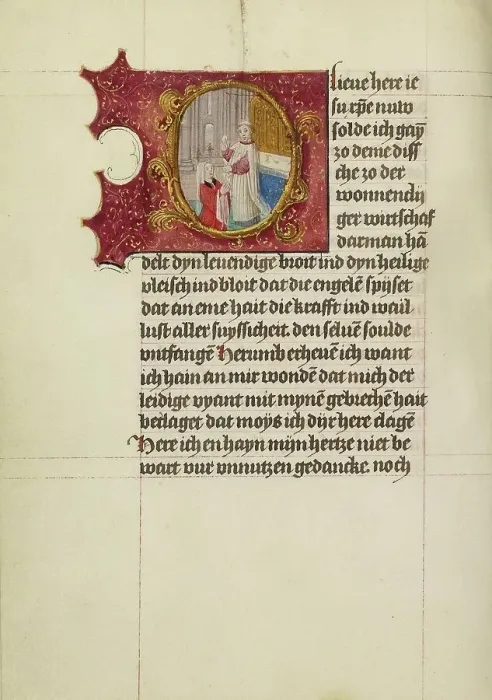 O lieue here ie
su xp̄e nuw
solde ich gaȳ
zo deme diſſ
che zo der
wonnendÿ
ger wirtſchaf
darman hā
delt dyn leuendige broit ind dyn heilige
vleiſch ind bloit dat die engelē ſpijſet
dat an eme hait die krafft ind wail
luſt aller ſuyſſicheit. den ſeluē ſoulde
vntfangē Herumb erheuē ich want
ich hain an mir wondē dat mich der
leidige vyant mit mynē gebrechē hait
beclaget dat moÿs ich dÿr here clagē
Here ich en hayn mijn hertze niet be
wart vur vnnutzen gedancke. noch